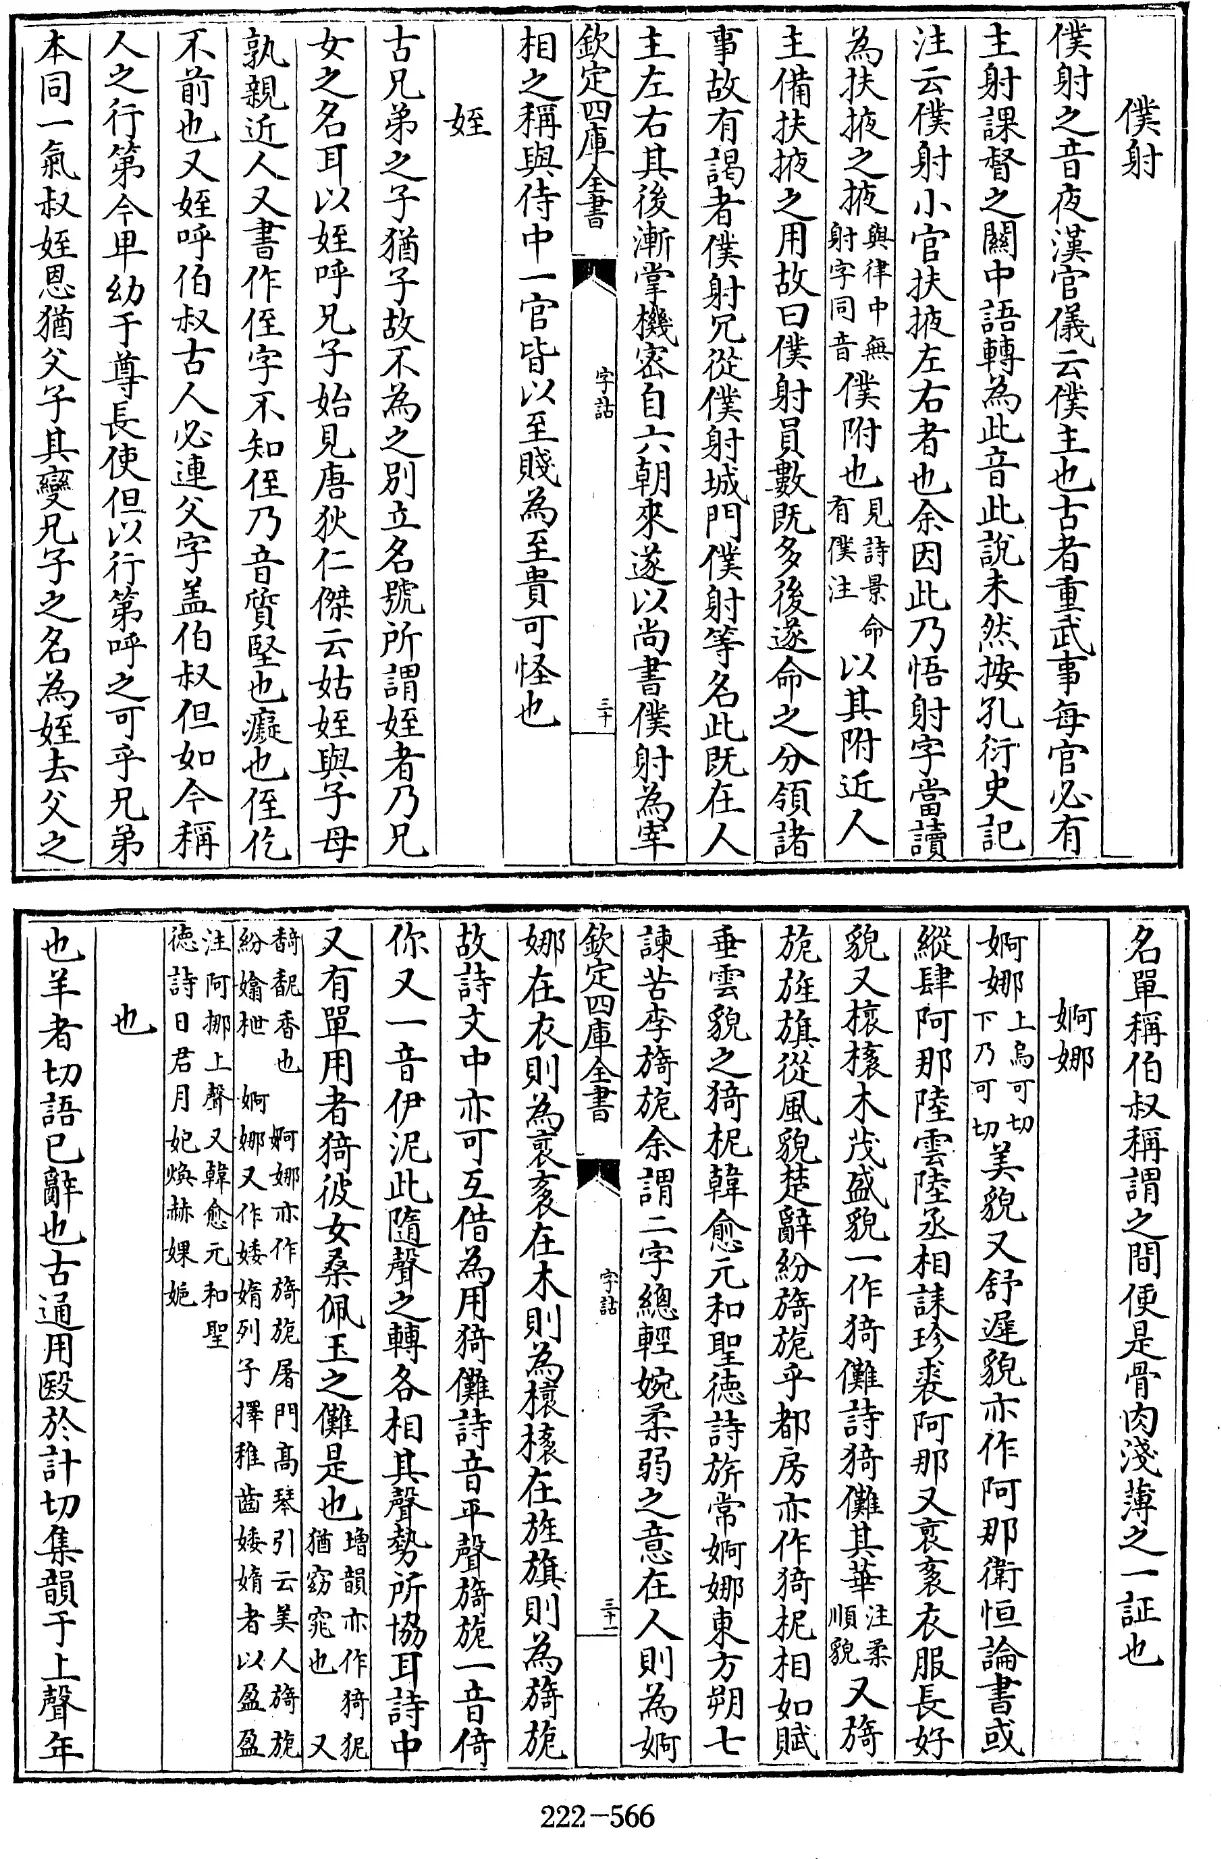 僕射
僕射之音夜漢官儀云僕主也古者重武事每官必有
主射課督之關中語轉為此音此說未然按孔衍史記
注云僕射小官扶掖左右者也余因此乃悟射字當讀
為扶掖之掖與律中無射字同音僕附也見詩景命有僕注以其附近人
主備扶掖之用故曰僕射員數既多後遂命之分領諸
事故有謁者僕射冗從僕射城門僕射等名此既在人
主左右其後漸掌機密自六朝來遂以尚書僕射為宰
欽定四庫全書 字詁 三十
相之稱與侍中一官皆以至賤為至貴可怪也
姪
古兄弟之子猶子故不為之別立名號所謂姪者乃兄
女之名耳以姪呼兄子始見唐狄仁傑云姑姪與子母
孰親近人又書作侄字不知侄乃音質堅也癡也侄仡
不前也又姪呼伯叔古人必連父字蓋伯叔但如今稱
人之行第今卑幼于尊長使但以行第呼之可乎兄弟
本同一氣叔姪恩猶父子其變兄子之名為姪去父之
名單稱伯叔稱謂之間便是骨肉淺薄之一証也
婀娜
婀娜上烏可切下乃可切美貌又舒遲貌亦作阿那衛恒論書或
縱肆阿那陸雲陸丞相誄珍裘阿那又裒袲衣服長好
貌又榱橠木茂盛貌一作猗儺詩猗儺其華注柔順貌又旖
旎旌旗從風貌楚辭紛旖旎乎都房亦作猗柅相如賦
垂雲貌之猗柅韓愈元和聖德詩旂常婀娜東方朔七
諫苦李旖旎余謂二字總輕婉柔弱之意在人則為婀
欽定四庫全書 字詁 三十一
娜在衣則為裒袲在木則為榱橠在旌旗則為旖旎
故詩文中亦可互借為用猗儺詩音平聲旖旎一音倚
你又一音伊泥此隨聲之轉各相其聲勢所協耳詩中
又有單用者猗彼女桑佩玉之儺是也增韻亦作猗狔猶窈窕也 又
馣馜香也 婀娜亦作旖旎屠門高琴引云美人旖旎
紛媮枻 婀娜又作婑媠列子擇稚齒婑媠者以盈盈
注阿挪上聲又韓愈元和聖
德詩日君月妃煥赫婐㛂
也
也羊者切語已辭也古通用殹於計切集韻于上聲年